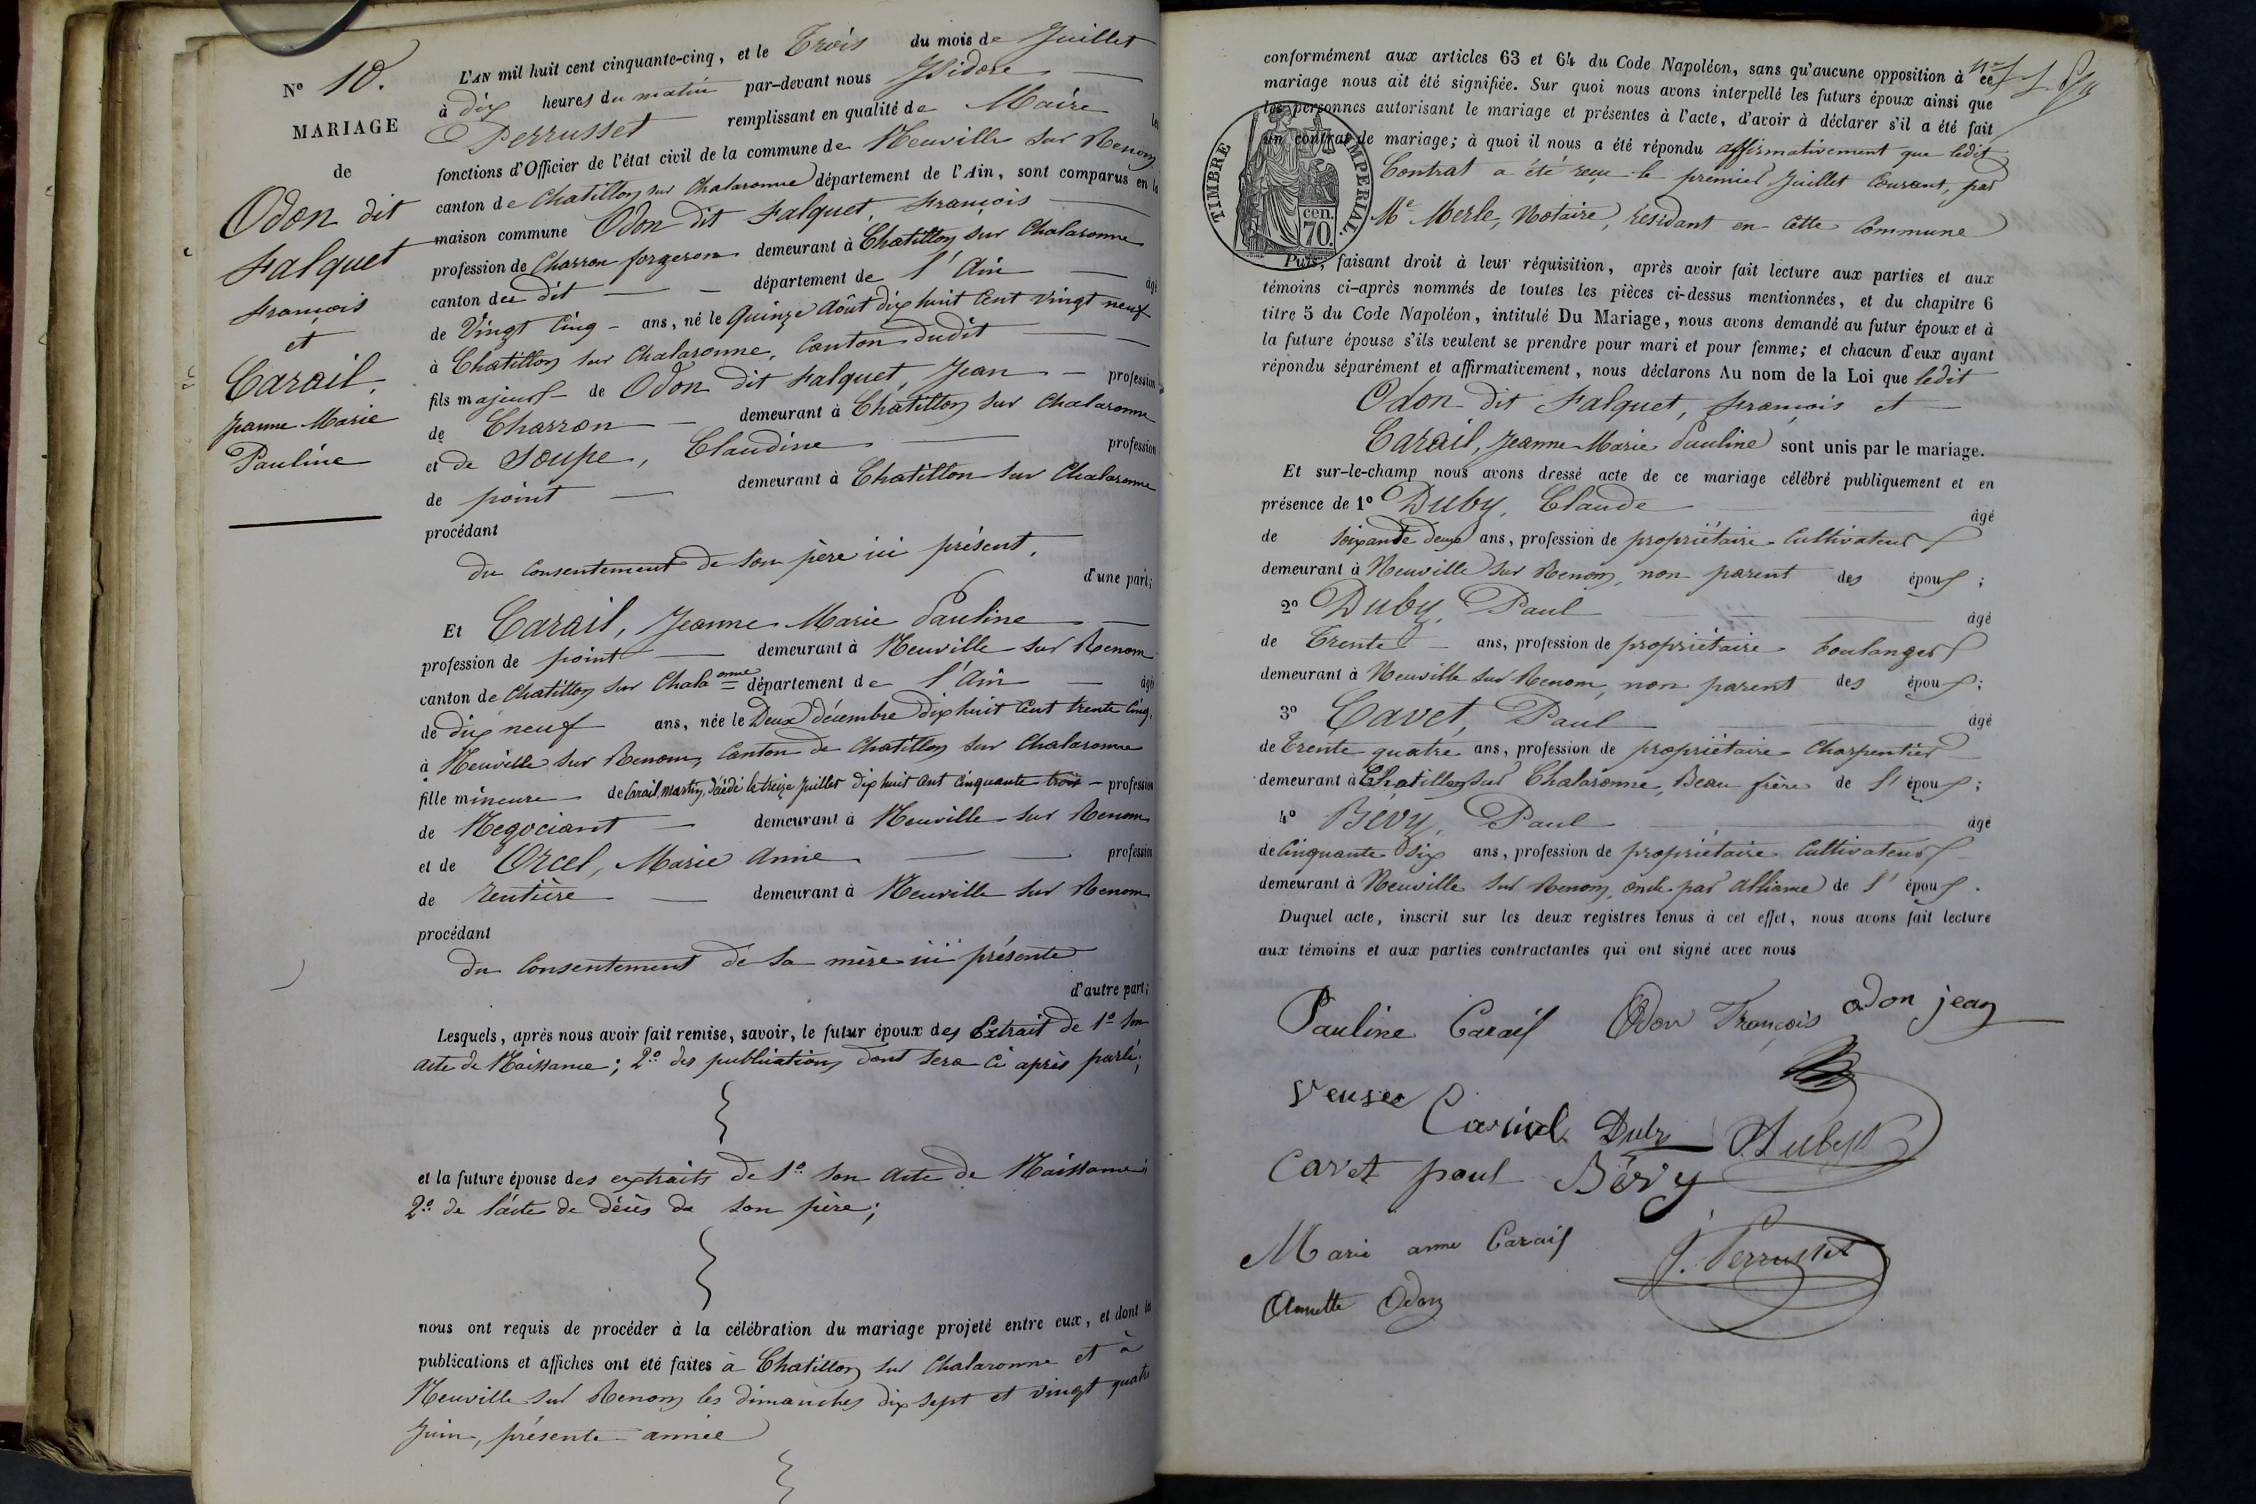 N° 10.
MARIAGE
de
Odon dit
Falquet
François
et
Carail,
Jeanne Marie
Pauline
L'AN mil huit cent cinquante-cinq, et le Trois du mois de Juillet
à dix heures du matin par-devant nous Isidore
Perrusset remplissant en qualité de Maire les
fonctions d'Officier de l'état civil de la commune de Neuville sur Renom
canton de Chatillon sur Chalaronne département de l'Ain, sont comparus en la
maison commune Odon dit Falquet, François
profession de Charron forgeron demeurant à Chatillon sur Chalaronne
canton du dit département de l'Ain âgé
de Vingt Cinq ans, né le Quinze Août dix huit Cent Vingt neuf
à Chatillon sur Chalaronne, Canton dudit
fils majeur de Odon dit Falquet, Jean profession
de Charron demeurant à Chatillon sur Chalaronne
et de Soupe, Claudine profession
de point demeurant à Chatillon sur Chalaronne
procédant
du Consentement de son père ici présent,
d'une part;
Et Carail, Jeanne Marie Pauline
profession de point demeurant à Neuville sur Renom
canton de Chatillon sur Chalaonne département de l'Ain âgé
de dix neuf ans, née le Deux décembre dix huit Cent trente Cinq,
à Neuville sur Renom, Canton de Chatillon sur Chalaronne
fille mineure de Carail, Martin, décédé le treize Juillet dix huit Cent Cinquante trois profession
de Négociant demeurant à Neuville sur Renom
et de Orcel, Marie Anne profession
de rentière demeurant à Neuville sur Renom
procédant
du Consentement de sa mère ici présente
d'autre part;
Lesquels, après nous avoir fait remise, savoir, le futur époux des Extrait de 1° Son
acte de Naissance; 2° des publications dont sera Ci après parlé;
et la future épouse des extraits de 1° Son Acte de Naissance;
2° de l'acte de décès de son père;
nous ont requis de procéder à la célébration du mariage projeté entre eux, et dont les
publications et affiches ont été faites à Chatillon sur Chalaronne et à
Neuville sur Renom les dimanches dix sept et vingt quatre
Juin, présente année
conformément aux articles 63 et 64 du Code Napoléon, sans qu'aucune opposition à ce
mariage nous ait été signifiée. Sur quoi nous avons interpellé les futurs époux ainsi que
les personnes autorisant le mariage et présentes à l'acte, d'avoir à déclarer s'il a été fait
un contrat de mariage; à quoi il nous a été répondu affirmativement que ledit
Contrat a été reçu le premier Juillet Courant, par
Me Merle, Notaire, résidant en Cette Commune
TIMBRE IMPERIAL.
cen.
70.
Puis, faisant droit à leur réquisition, après avoir fait lecture aux parties et aux
témoins ci-après nommés de toutes les pièces ci-dessus mentionnées, et du chapitre 6
titre 5 du Code Napoléon, intitulé Du Mariage, nous avons demandé au futur époux et à
la future épouse s'ils veulent se prendre pour mari et pour femme; et chacun d'eux ayant
répondu séparément et affirmativement, nous déclarons Au nom de la Loi que ledit
Odon dit Falquet, François et
Carail, Jeanne Marie Pauline sont unis par le mariage.
Et sur-le-champ nous avons dressé acte de ce mariage célébré publiquement et en
présence de 1° Duby, Claude âgé
de soixante deux ans, profession de propriétaire Cultivateur
demeurant à Neuville sur Renom, non parent des époux;
2° Duby, Paul âgé
de Trente ans, profession de propriétaire boulanger
demeurant à Neuville sur Renom, non parent des époux;
3° Cavet, Paul âgé
de Trente quatre ans, profession de propriétaire Charpentier
demeurant à Chatillon sur Chalaronne, Beau frère de l'époux;
4° Bévy, Paul âgé
de Cinquante Six ans, profession de propriétaire Cultivateur
demeurant à Neuville sur Renom, oncle par alliance de l'époux.
Duquel acte, inscrit sur les deux registres tenus à cet effet, nous avons fait lecture
aux témoins et aux parties contractantes qui ont signé avec nous
Pauline Carail Odon François odon jean
Veuse Carail Duby P. Duby
Cavet paul Bévy
Marie anne Carail J. Perrusset
Annette Odon